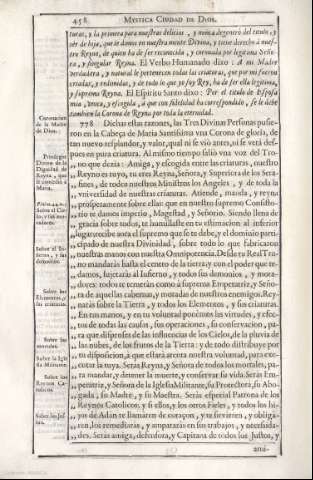 458 MYSTICA CIUDAD DE DIOS.
turas, y la primera para nuestras delicias, y nunca degeneró del titulo, y
ser de hija, que le damos en nuestra mente Divina, y tiene derecho à nues-
tro Reyno, de quien ha de ser reconocida, y coronada por legitima Seño-
ra, y singular Reyna. El Verbo Humanado dixo: A mi Madre
verdadera, y natural le pertenecen todas las criaturas, que por mi fueron
criadas, y redimidas, y de todo lo que yo soy Rey, ha de ser ella legitima,
y suprema Reyna. El Espiritu Santo dixo: Por el titulo de Esposa
mia, unica, y escogida, à que con fidelidad ha correspondido, se le debe
tambien la Corona de Reyna por toda la eternidad.
Coronacion
de la Madre
de Dios.
778 Dichas estas razones, las Tres Divinas Personas pusie-
ron en la Cabeça de Maria Santissima vna Corona de gloria, de
tan nuevo resplandor, y valor, qual ni se viò antes, ni se verà des-
pues en pura criatura. Al mismo tiempo saliò vna voz del Tro-
no que dezia: Amiga, y escogida entre las criaturas, nuestro
Reyno es tuyo, tu eres Reyna, Señora, y Superiora de los Sera-
fines, de todos nuestros Ministros los Angeles, y de toda la
vniversidad de nuestras criaturas. Atiende, manda, y reyna
prosperamente sobre ellas: que en nuestro supremo Consisto-
rio te damos imperio, Magestad, y Señorio. Siendo llena de
gracia sobre todos, te humillaste en tu estimacion al inferior
lugar: recibe aora el supremo que se te debe, y el dominio parti-
cipado de nuestra Divinidad, sobre todo lo que fabricaron
nuestras manos con nuestra Omnipotencia. Desde tu Real Tro-
no mandaràs hasta el centro de la tierra: y con el poder que te
damos, sujetaràs al Infierno, y todos sus demonios, y mora-
dores: todos te temeràn como à suprema Emperatriz, y Seño-
ra de aquellas cabernas, y moradas de nuestros enemigos. Rey-
naràs sobre la Tierra, y todos los Elementos, y sus criaturas.
En tus manos, y en tu voluntad ponemos las virtudes, y efec-
tos de todas las causas, sus operaciones, su conservacion, pa-
ra que dispenses de las influencias de los Cielos, de la pluvia de
las nubes, de los frutos de la Tierra: y de todo distribuye por
tu disposicion, à que estarà atenta nuestra voluntad, para exe-
cutar la tuya. Seràs Reyna, y Señora de todos los mortales, pa-
ra mandar, y detener la muerte, y conservar su vida. Seràs Em-
peratriz, y Señora de la Iglesia Militante, su Protectora, su Abo-
gada, su Madre, y su Maestra. Seràs especial Patrona de los
Reynos Catolicos; y si ellos, y los otros Fieles, y todos los hi-
jos de Adàn te llamaren de coraçon, y te sirvieren, y obliga-
ren, los remediaràs, y ampararàs en sus trabajos, y necessida-
des. Seràs amiga, defensora, y Capitana de todos los Justos, y
ami-
Sobre los
mortales.
Sobre la Iglesia
Militante.